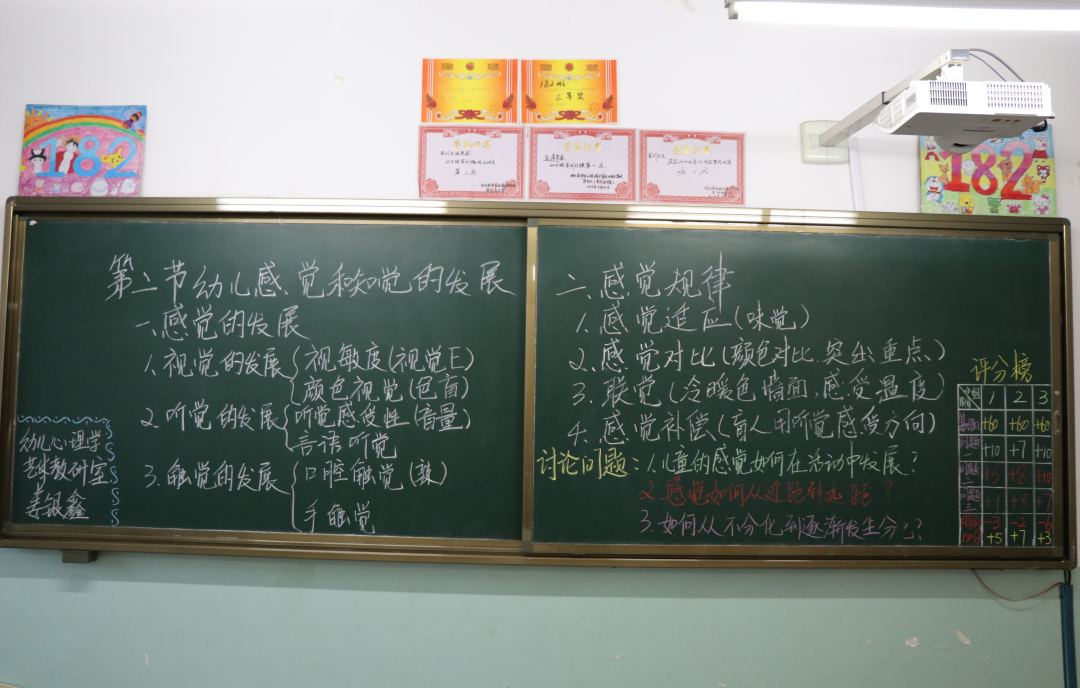 182
182班
三等奖
182
第二节幼儿感觉和知觉的发展
一、感觉的发展
1.视觉的发展{视敏度(视觉E)
颜色视觉(色盲)
2.听觉的发展{听觉感受性(音量)
言语听觉
3.触觉的发展{口腔触觉
手触觉
幼儿心理学
艺体教研室
姜银鑫
二、感觉规律
1.感觉适应(味觉)
2.感觉对比(颜色对比.突出重点)
3.联觉(冷暖色墙面,感受温度)
4.感觉补偿(盲人用听觉感受方向)
讨论问题:1.儿童的感觉如何在活动中发展?
2.感觉如何从近距到远距?
3.如何从不分化到逐渐发生分化?
评分榜
1 2 3
+60 +60 +60
问题一 +10 +7 +10
问题二 +5 +8 +10
问题三 +8 +7
-3 -2 -6
+5 +7 +3